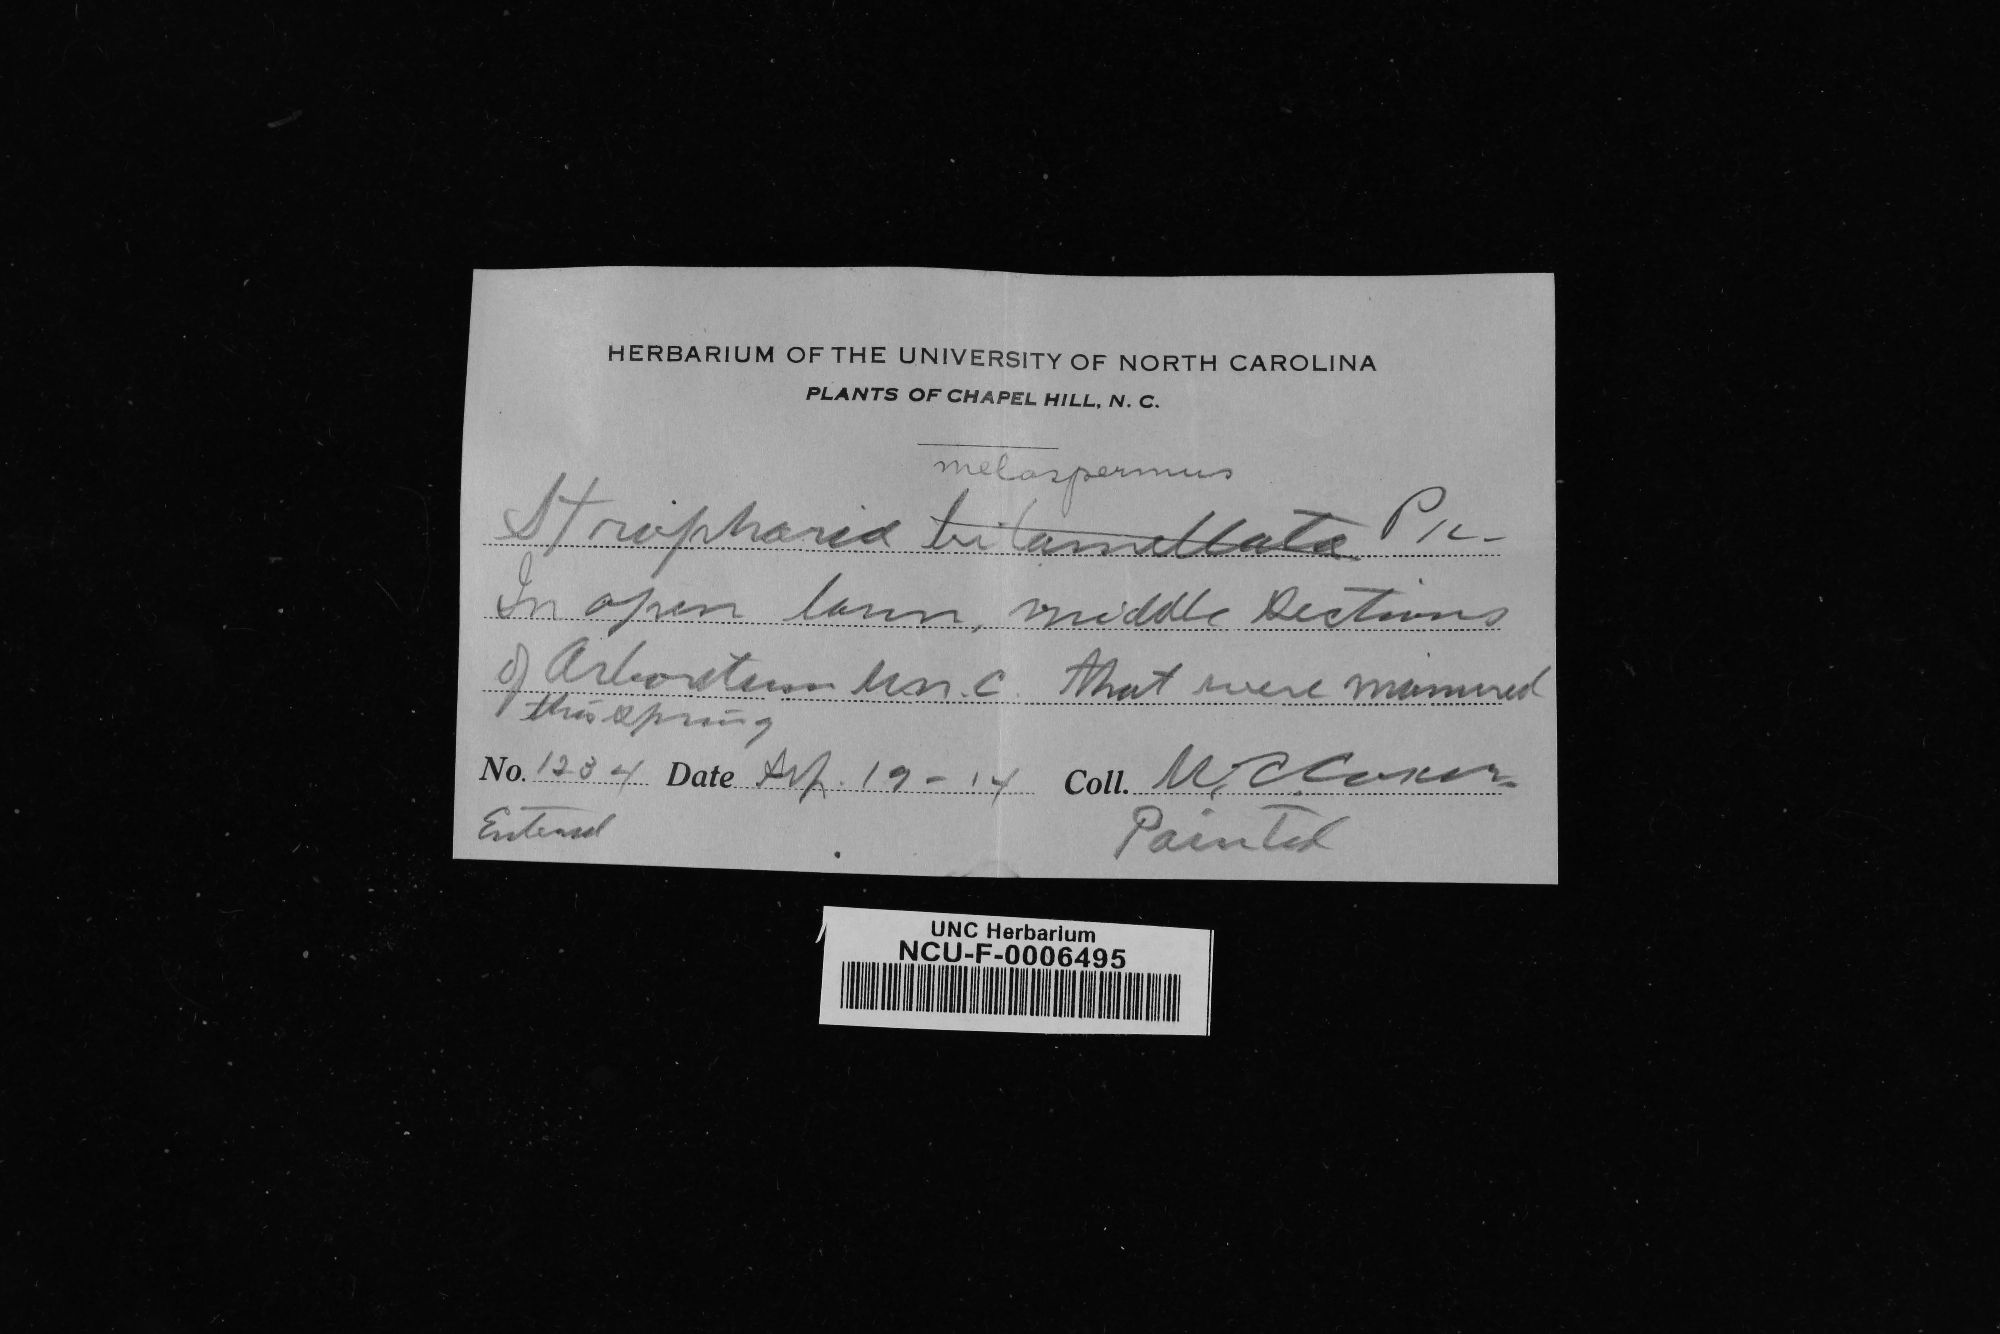 HERBARIUM OF THE UNIVERSITY OF NORTH CAROLINA
PLANTS OF CHAPEL HILL, N. C.
melaspermus
Stropharia bilamellata Pk-
In open lawn, middle sections
of Arboretum U.N.C. that were manured
this spring
No. 1234 Date Sep. 19-14 Coll. W.C. Coker
Entered
Painted
UNC Herbarium
NCU-F-0006495